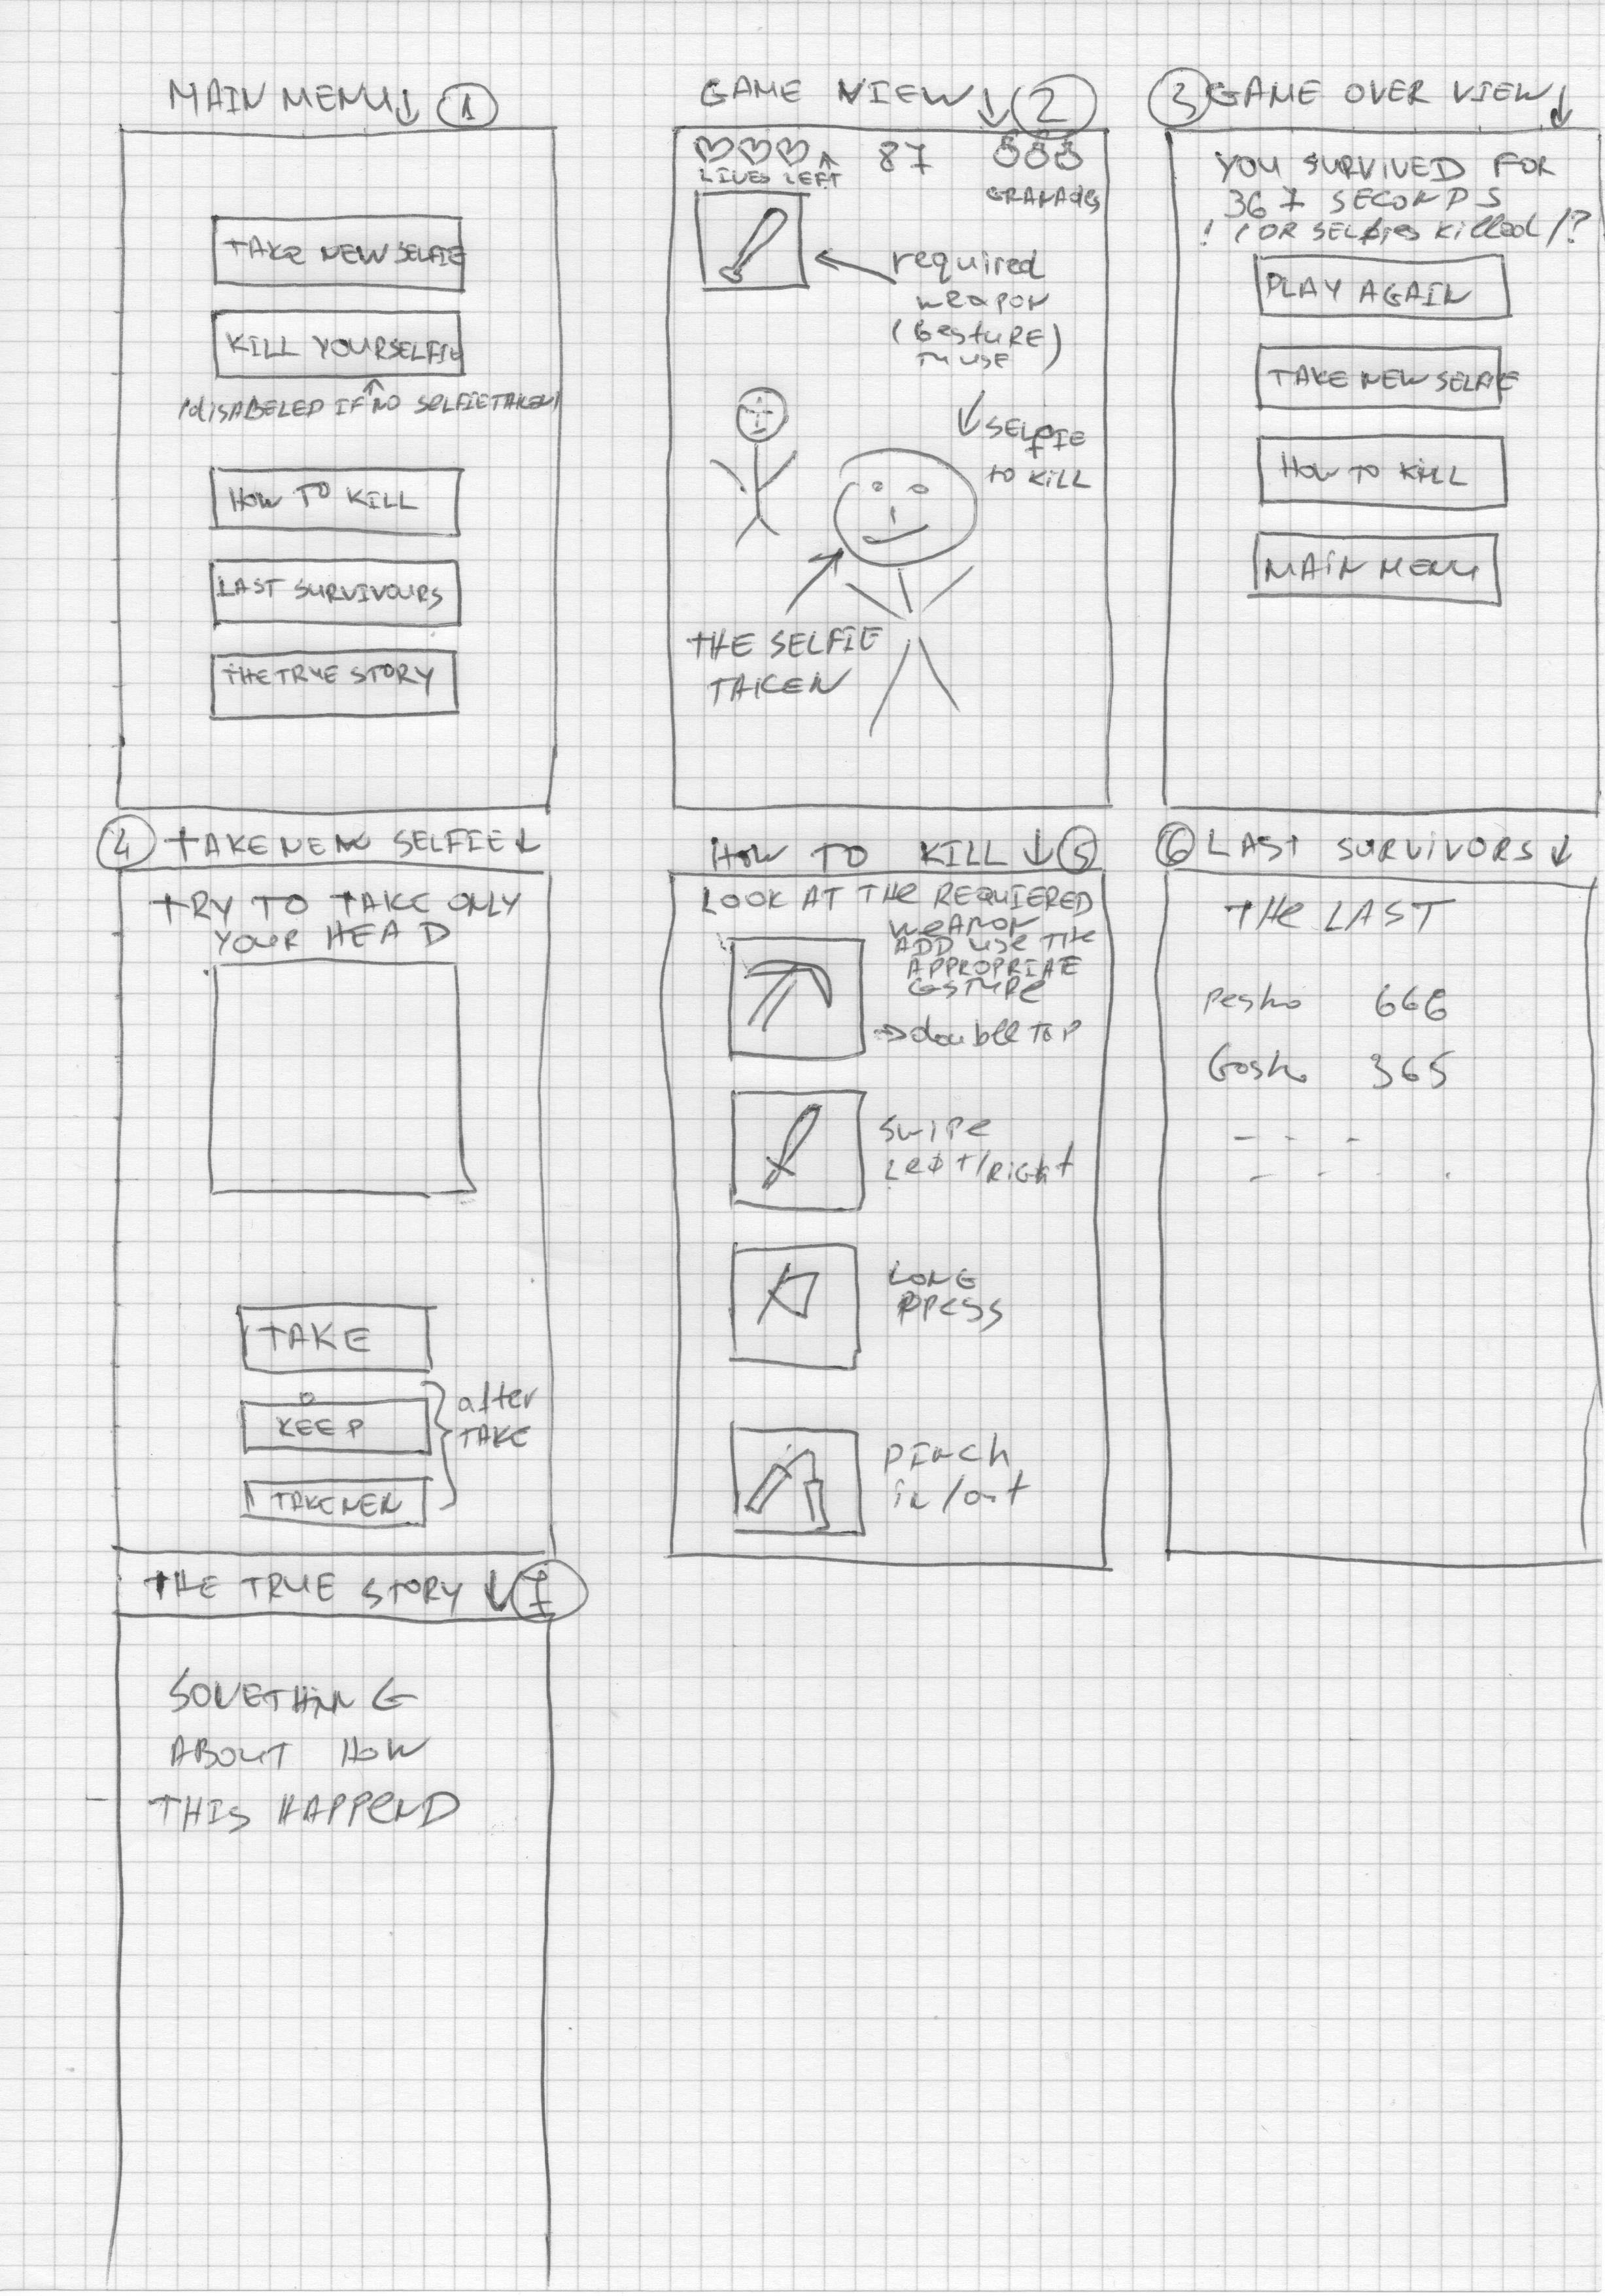 MAIN MENU ↓ 1
TAKE NEW SELFIE
KILL YOURSELFIE
(diSABELED IF NO SELFIE TAKEN)
HOW TO KILL
LAST SURVIVOURS
THE TRUE STORY
GAME VIEW ↓ 2
LIVES LEFT
87
GRANAdes
required
weapon
(GestURE)
TO USE
SELFIE
to KiLL
THE SELFIE
TAKEN
3 GAME OVER VIEW ↓
YOU SURVIVED FOR
367 SECONDS
! (OR SELFies Killed)?
PLAY AGAIN
TAKE NEW SELFIE
HOW TO KILL
MAIN MENU
4 TAKE NEW SELFIE ↓
TRY TO TAKE ONLY
YOUR HEAD
TAKE
KEEP
TAKE NEW
after
TAKE
HOW TO KILL ↓ 5
LOOK AT THE REQUIERED
WeAPON
ADD USE THE
APPROPRIATE
GESTURE
→ double TAP
SWIPE
LEFT/RIGHT
LONG
PRESS
PINCH
in/out
6 LAST SURVIVORS ↓
THE LAST
Pesho 666
Gosho 365
THE TRUE STORY ↓ 7
SOMETHING
ABOUT HOW
THIS HAPPEND